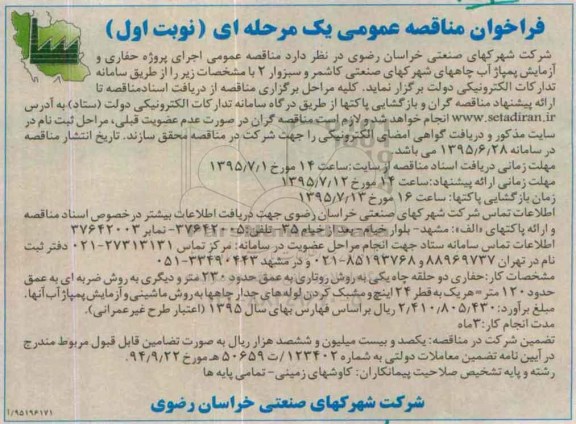 فراخوان مناقصه عمومی یک مرحله ای (نوبت اول)
شرکت شهرکهای صنعتی خراسان رضوی در نظر دارد مناقصه عمومی اجرای پروژه حفاری و
آزمایش پمپاژ آب چاههای شهرکهای صنعتی کاشمر و سبزوار ۲ با مشخصات زیر را از طریق سامانه
تدارکات الکترونیکی دولت برگزار نماید. کلیه مراحل برگزاری مناقصه از دریافت اسنادمناقصه تا
ارائه پیشنهاد مناقصه گران و بازگشایی پاکتها از طریق درگاه سامانه تدارکات الکترونیکی دولت (ستاد) به آدرس
www.setadiran.ir انجام خواهد شد و لازم است مناقصه گران در صورت عدم عضویت قبلی، مراحل ثبت نام در
سایت مذکور و دریافت گواهی امضای الکترونیکی را جهت شرکت در مناقصه محقق سازند. تاریخ انتشار مناقصه
در سامانه ۱۳۹۵/۶/۲۸ می باشد.
مهلت زمانی دریافت اسناد مناقصه از سایت: ساعت ۱۴ مورخ ۱۳۹۵/۷/۱
مهلت زمانی ارائه پیشنهاد: ساعت ۱۴ مورخ ۱۳۹۵/۷/۱۲
زمان بازگشایی پاکتها: ساعت ۱۶ مورخ ۱۳۹۵/۷/۱۳
اطلاعات تماس شرکت شهرکهای صنعتی خراسان رضوی جهت دریافت اطلاعات بیشتر در خصوص اسناد مناقصه
و ارائه پاکتهای «الف»: مشهد- بلوار خیام- بعد از خیام ۳۵- تلفن: ۳۷۶۴۲۰۰۵- نمابر ۳۷۶۴۲۰۰۳
اطلاعات تماس سامانه ستاد جهت انجام مراحل عضویت در سامانه: مرکز تماس ۲۷۳۱۳۱۳۱-۰۲۱ دفتر ثبت
نام در تهران ۸۸۹۶۹۷۳۷ و ۸۵۱۹۳۷۶۸-۰۲۱ و در مشهد ۳۳۴۹۰۴۴۳-۰۵۱
مشخصات کار: حفاری دو حلقه چاه یکی به روش روتاری به عمق حدود ۲۳۰ متر و دیگری به روش ضربه ای به عمق
حدود ۱۲۰ متر = هریک به قطر ۲۴ اینچ و مشبک کردن لوله های جدار چاهها به روش ماشینی و آزمایش پمپاژ آب آنها.
مبلغ برآورد: ۲/۴۱۰/۸۰۵/۴۳۰ ریال بر اساس فهارس بهای سال ۱۳۹۵ (اعتبار طرح غیرعمرانی).
مدت انجام کار: ۳ماه
تضمین شرکت در مناقصه: یکصد و بیست میلیون و ششصد هزار ریال به صورت تضامین قابل قبول مربوط مندرج
در آیین نامه تضمین معاملات دولتی به شماره ۱۲۳۴۰۲/ت ۵۰۶۵۹ هـ مورخ ۹۴/۹/۲۲.
رشته و پایه تشخیص صلاحیت پیمانکاران: کاوشهای زمینی- تمامی پایه ها
شرکت شهرکهای صنعتی خراسان رضوی
۱/۹۵۱۹۶۱۷۱